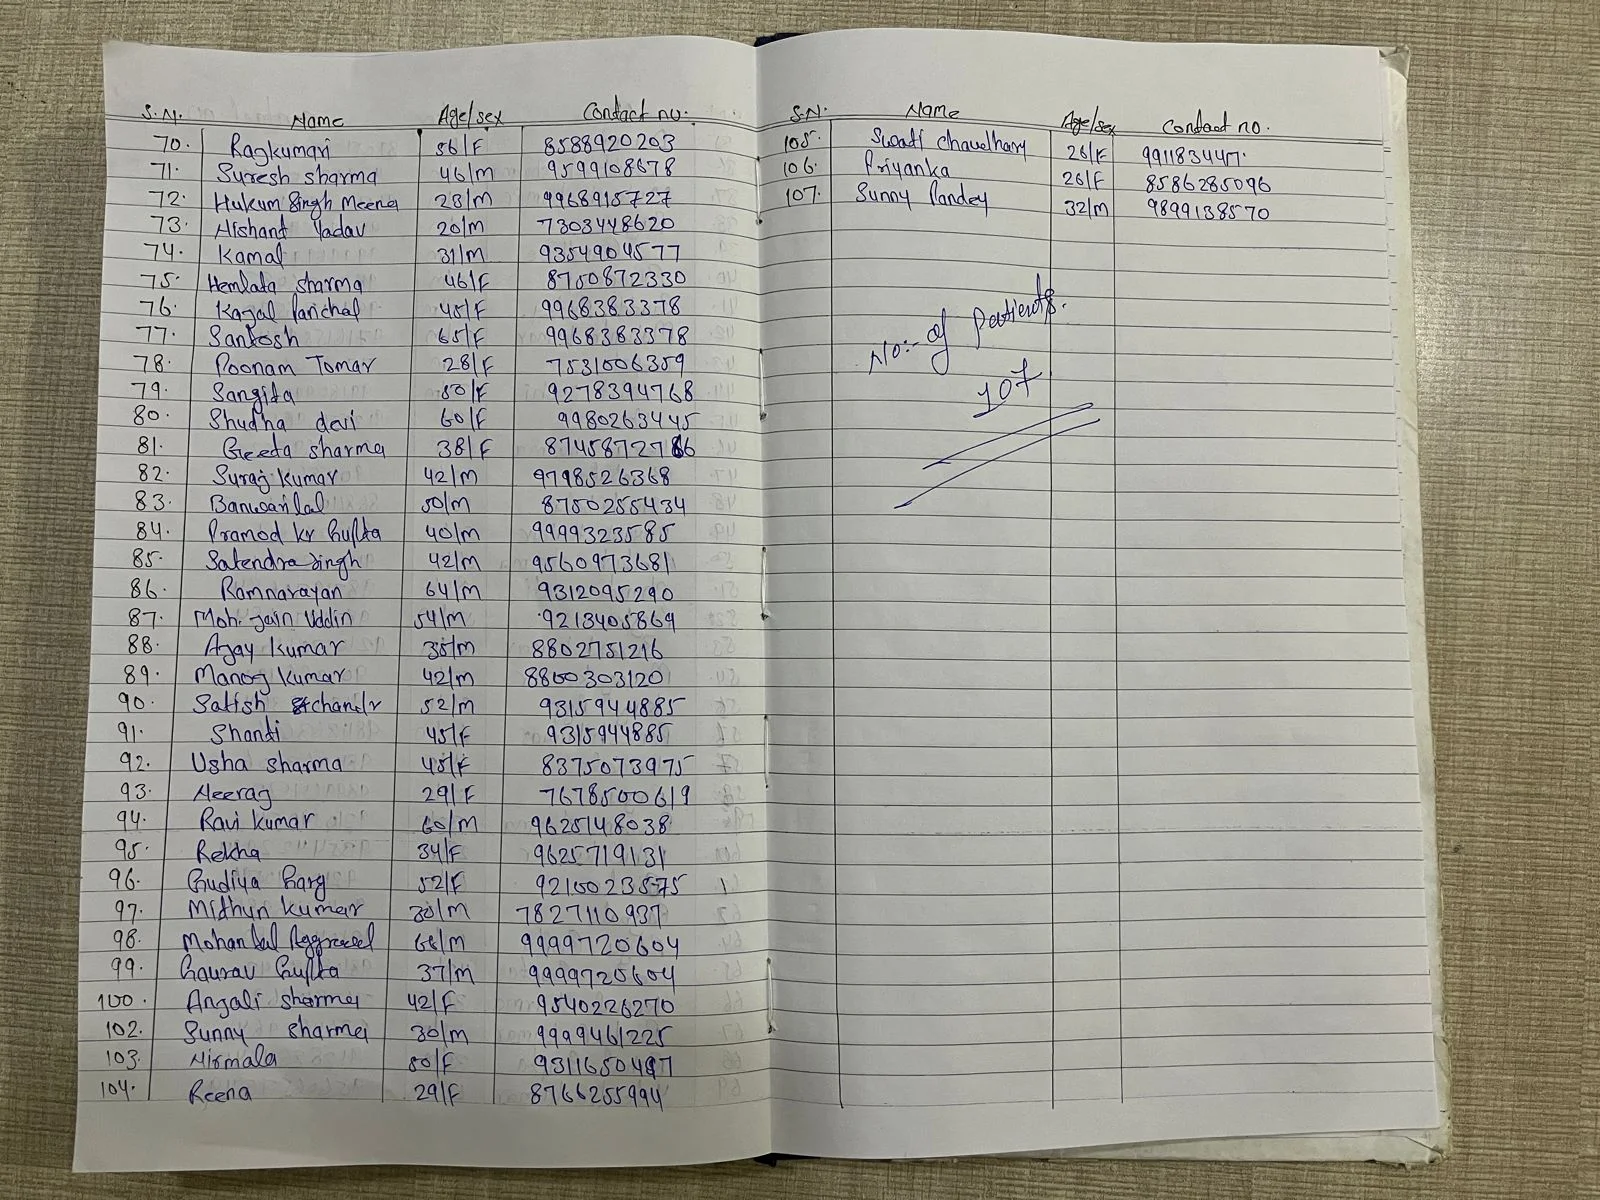 S.N. Name Age/sex Contact no.
70. Rajkumari 56/F 8588920203
71. Suresh sharma 46/m 9599108678
72. Hukum Singh Meena 23/m 9968915727
73. Nishant Yadav 20/m 7303448620
74. Kamal 31/m 9354904577
75. Hemlata sharma 46/F 8750872330
76. Kajal Panchal 45/F 9968383378
77. Santosh 65/F 9968383378
78. Poonam Tomar 28/F 7531006359
79. Sangita 50/F 9278394768
80. Shudha devi 60/F 9980263445
81. Geeta sharma 38/F
82. Suraj kumar 42/m 9798526368
83. Banwarilal 50/m 8750255434
84. Pramod kr Gupta 40/m 9999323585
85. Satendra singh 42/m 9560973681
86. Ramnarayan 64/m 9312095290
87. Moh. Jain Uddin 54/m 9213405869
88. Ajay kumar 35/m 8802751216
89. Manoj kumar 42/m 8800303120
90. Satish chandr 52/m 9315944885
91. Shanti 45/F 9315944885
92. Usha sharma 45/F 8375073975
93. Neeraj 29/F 7678500619
94. Ravi kumar 60/m 9625148038
95. Rekha 34/F 9625719131
96. Gudiya Garg 52/F 9210023575
97. Mithun kumar 30/m 7827110937
98. Mohan lal Aggrawal 66/m 9999720604
99. Gaurav Gupta 37/m 9999720604
100. Anjali sharma 42/F 9540226270
102. Sunny sharma 30/m 9999461225
103. Nirmala 50/F
104. Reena 29/F 8766255994
S.N. Name Age/sex Contact no.
105. Swati chaudhary 26/F 991183447.
106. Priyanka 26/F 8586285096
107. Sunny Pandey 32/m 9899138570
No:- of patients.
107